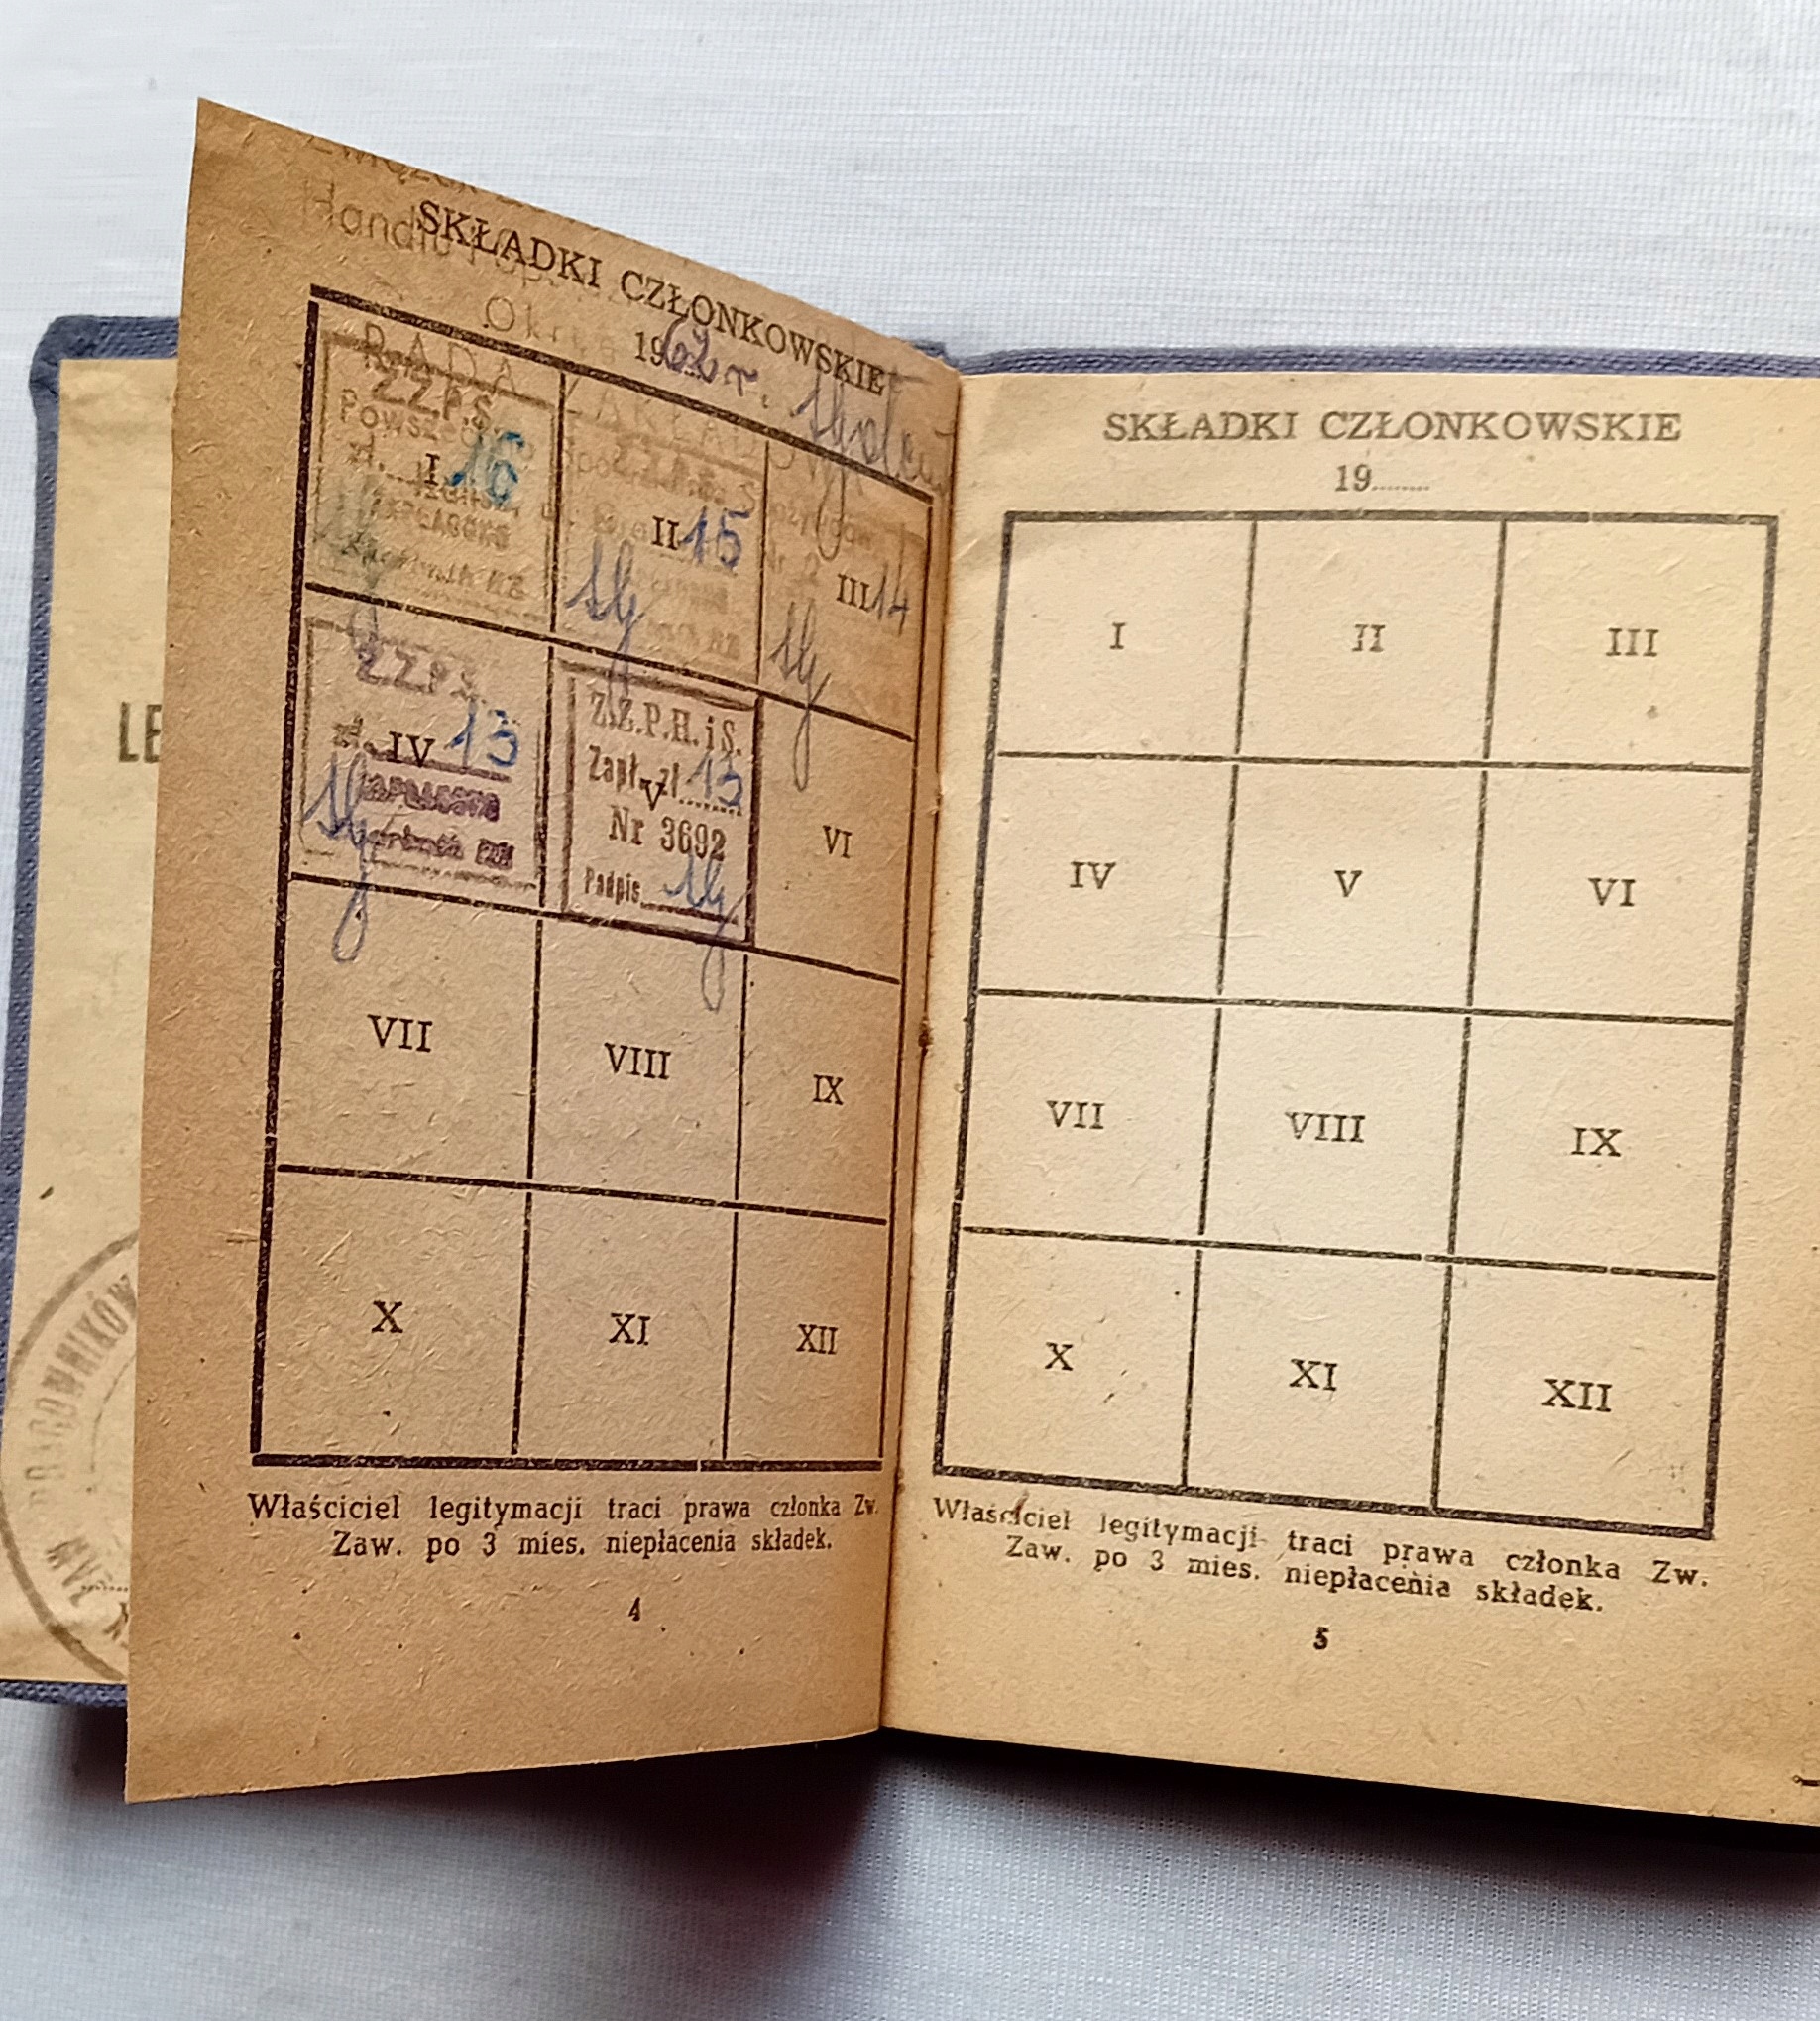 SKŁADKI CZŁONKOWSKIE
1962 r.
RADA
Z.Z.P.S.
zł. I 16
II 15
III 14
Z.Z.P.S.
zł. IV 13
ZAPŁACONO
Z.Z.P.H.i S.
Zapł. zł 13
V
Nr 3692
Podpis
VI
VII
VIII
IX
X
XI
XII
Właściciel legitymacji traci prawa członka Zw.
Zaw. po 3 mies. niepłacenia składek.
4
SKŁADKI CZŁONKOWSKIE
19........
I
II
III
IV
V
VI
VII
VIII
IX
X
XI
XII
Właściciel legitymacji traci prawa członka Zw.
Zaw. po 3 mies. niepłacenia składek.
5
LE
PRACOWNIKÓW